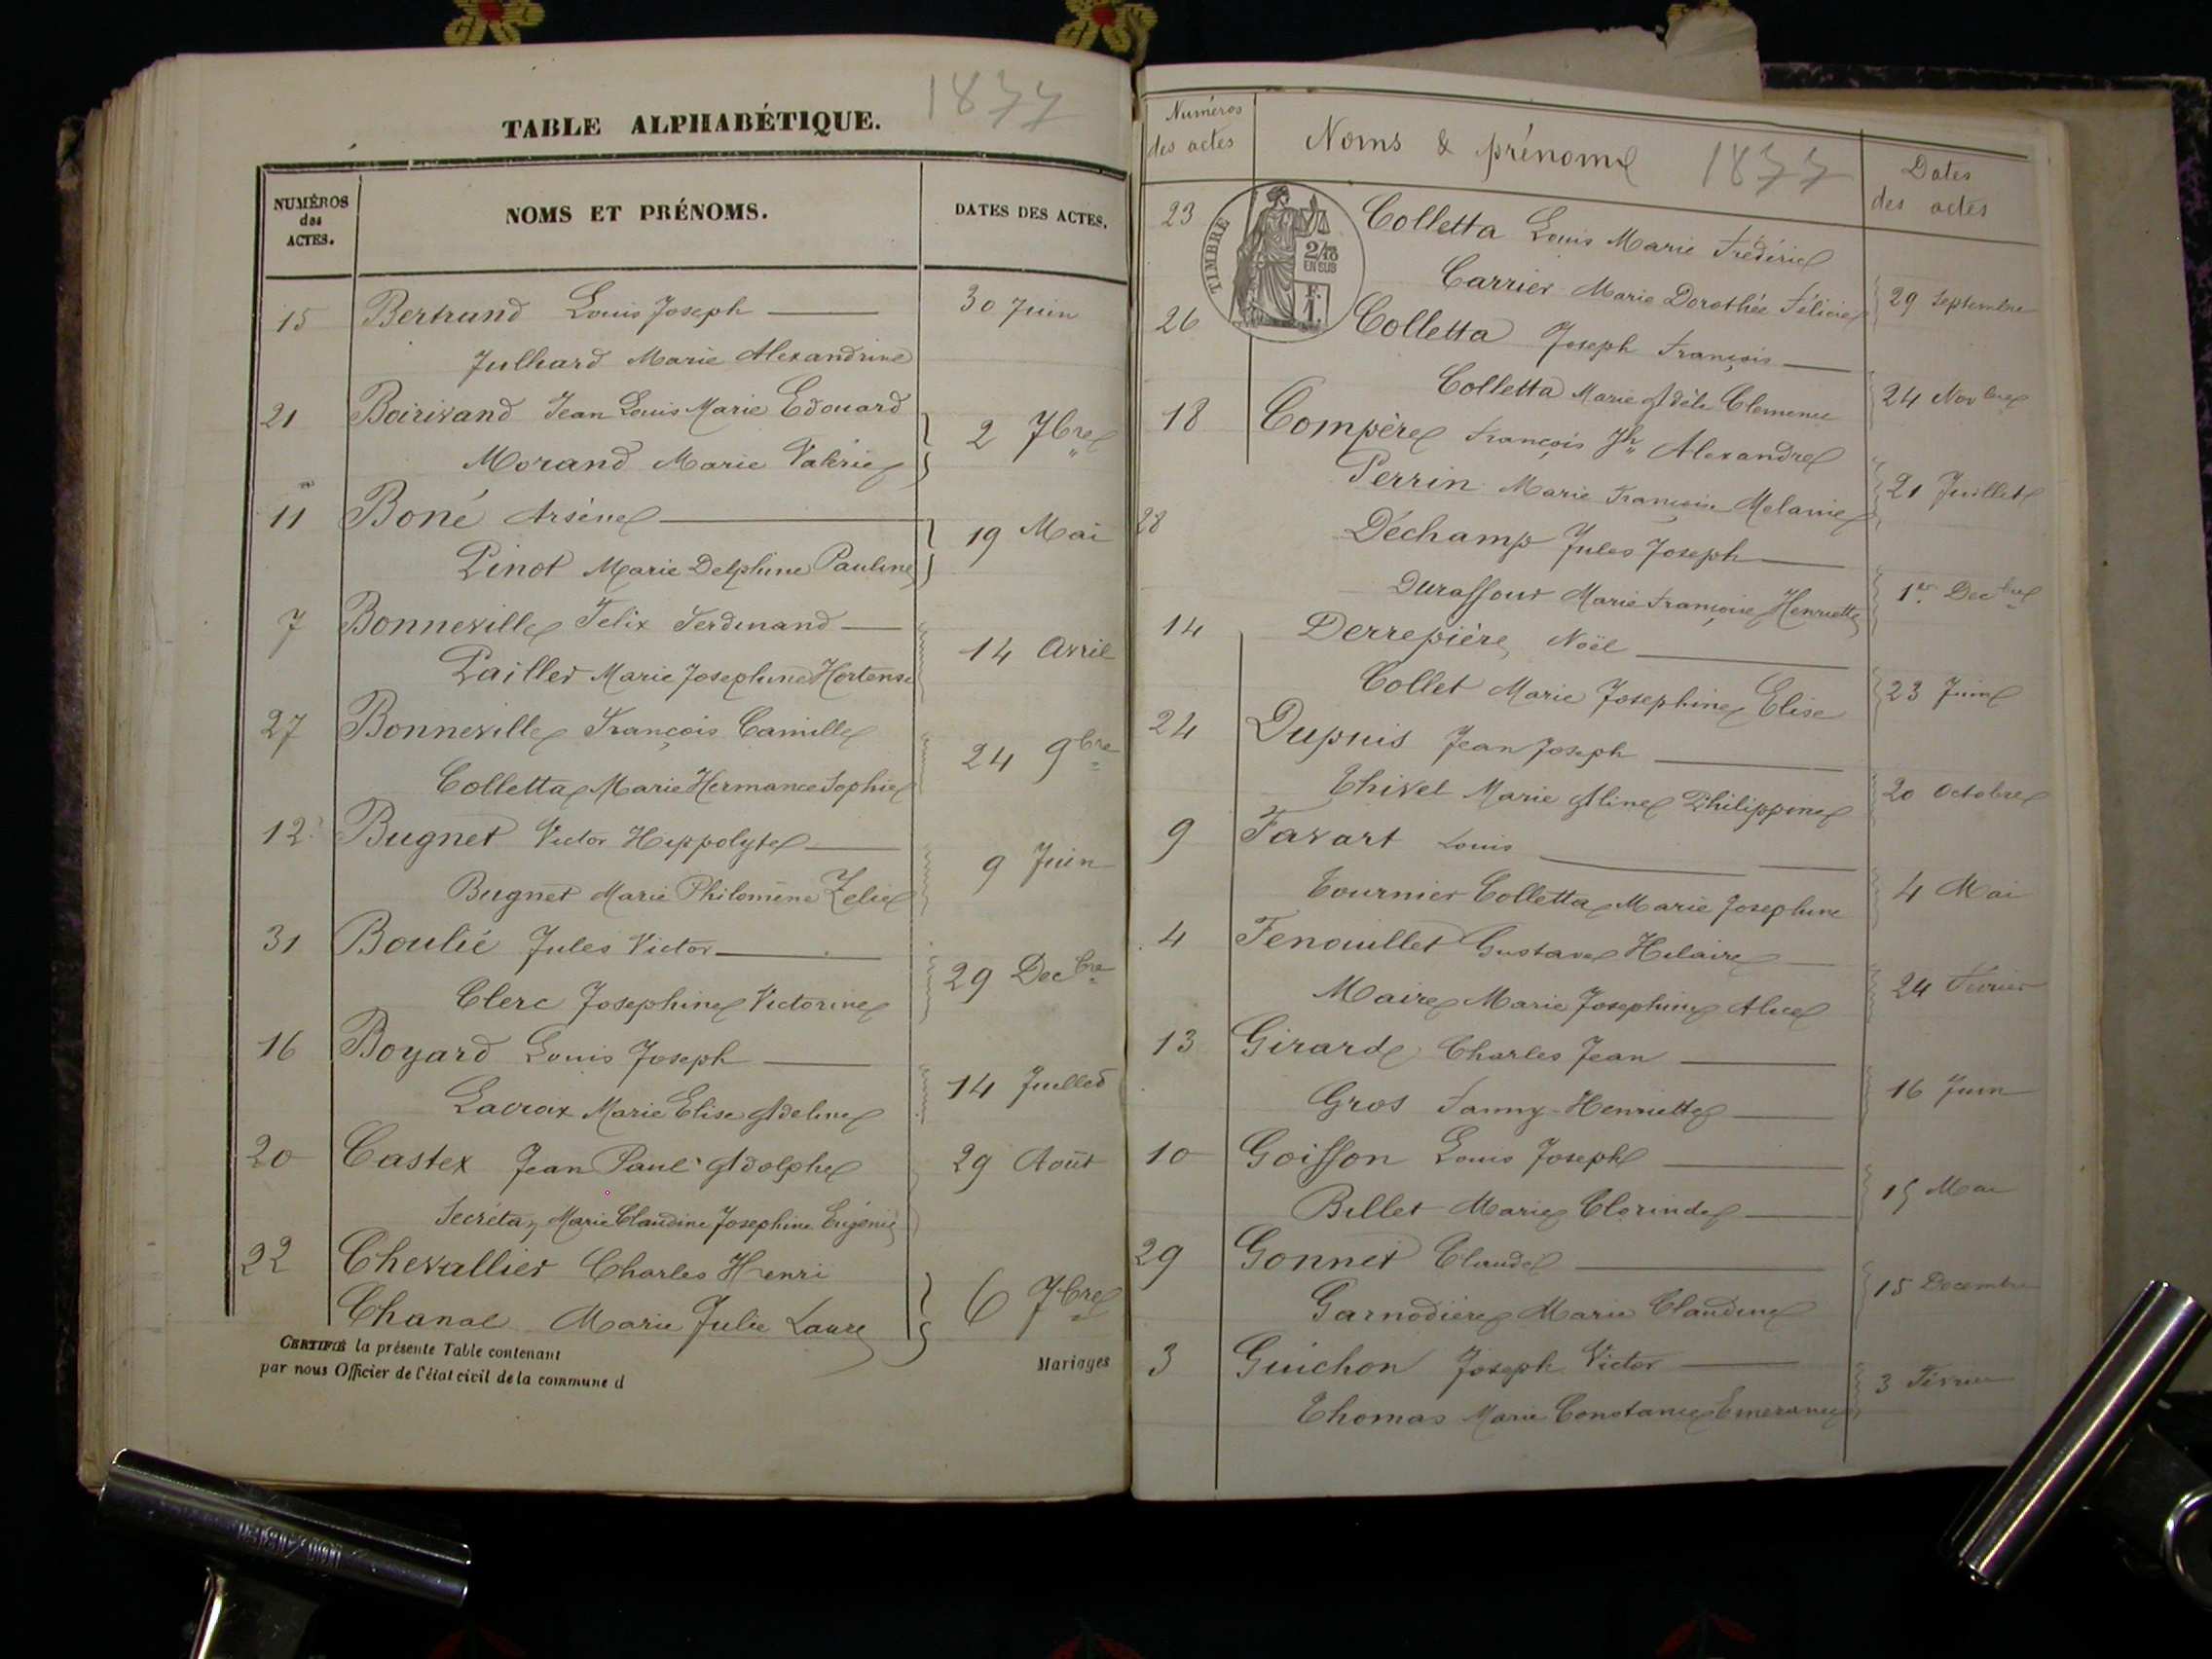 TABLE ALPHABÉTIQUE. 1877
NUMÉROS des ACTES. NOMS ET PRÉNOMS. DATES DES ACTES.
15 Bertrand Louis Joseph 30 Juin
Julhard Marie Alexandrine
21 Boirivand Jean Louis Marie Edouard
Morand Marie Valérie 2 7bre
11 Boné Arsène
Pinot Marie Delphine Pauline 19 Mai
7 Bonneville Felix Ferdinand
Pailler Marie Josephine Hortense 14 Avril
27 Bonneville François Camille
Colletta Marie Hermance Sophie 24 9bre
12 Bugnet Victor Hippolyte
Bugnet Marie Philomène Zelie 9 Juin
31 Boulié Jules Victor
Clerc Josephine Victorine 29 Decbre
16 Boyard Louis Joseph
Lacroix Marie Elise Adeline 14 Juillet
20 Castex Jean Paul Adolphe 29 Août
Secrétan Marie Claudine Josephine Eugénie
22 Chevallier Charles Henri
Chanal Marie Julie Laure 6 7bre
CERTIFIÉ la présente Table contenant Mariages
par nous Officier de l'état civil de la commune d
Numéros des actes Noms & prénoms 1877 Dates des actes
TIMBRE 2/10 EN SUS F. 1.
23 Colletta Louis Marie Frédéric
Carrier Marie Dorothée Félicie 29 Septembre
26 Colletta Joseph François
Colletta Marie Adèle Clemence 24 Novbre
18 Compère François Jh Alexandre
Perrin Marie Françoise Melanie 21 Juillet
28 Déchamp Jules Joseph
Duraffour Marie Françoise Henriette 1er Decbre
14 Derrepière Noël
Collet Marie Josephine Elise 23 Juin
24 Dupuis Jean Joseph
Thivel Marie Aline Philippine 20 Octobre
9 Favart Louis
Tournier Colletta Marie Josephine 4 Mai
4 Fenouillet Gustave Hilaire
Maire Marie Josephine Alice 24 Février
13 Girard Charles Jean
Gros Fanny Henriette 16 Juin
10 Goiffon Louis Joseph
Billet Marie Clorinde 15 Mai
29 Gonnet Claude
Garnodière Marie Claudine 15 Decembre
3 Guichon Joseph Victor
Thomas Marie Constance Emerance 3 Février